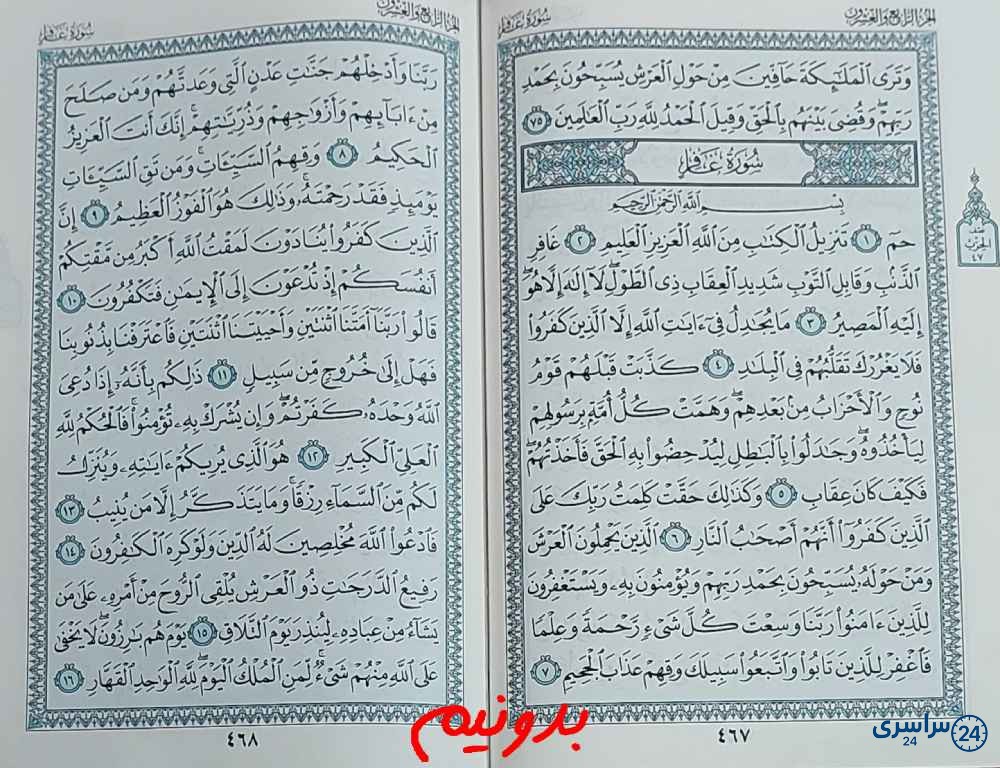 الجزء الرابع والعشرون
سورة غافر
وَتَرَى ٱلْمَلَٰٓئِكَةَ حَآفِّينَ مِنْ حَوْلِ ٱلْعَرْشِ يُسَبِّحُونَ بِحَمْدِ
رَبِّهِمْ وَقُضِيَ بَيْنَهُم بِٱلْحَقِّ وَقِيلَ ٱلْحَمْدُ لِلَّهِ رَبِّ ٱلْعَٰلَمِينَ ٧٥
سُورَةُ غَافِرٍ
بِسْمِ ٱللَّهِ ٱلرَّحْمَٰنِ ٱلرَّحِيمِ
حمٓ ١ تَنزِيلُ ٱلْكِتَٰبِ مِنَ ٱللَّهِ ٱلْعَزِيزِ ٱلْعَلِيمِ ٢ غَافِرِ
ٱلذَّنۢبِ وَقَابِلِ ٱلتَّوْبِ شَدِيدِ ٱلْعِقَابِ ذِي ٱلطَّوْلِ لَآ إِلَٰهَ إِلَّا هُوَ
إِلَيْهِ ٱلْمَصِيرُ ٣ مَا يُجَٰدِلُ فِيٓ ءَايَٰتِ ٱللَّهِ إِلَّا ٱلَّذِينَ كَفَرُوا۟
فَلَا يَغْرُرْكَ تَقَلُّبُهُمْ فِي ٱلْبِلَٰدِ ٤ كَذَّبَتْ قَبْلَهُمْ قَوْمُ
نُوحٍ وَٱلْأَحْزَابُ مِنۢ بَعْدِهِمْ وَهَمَّتْ كُلُّ أُمَّةٍۭ بِرَسُولِهِمْ
لِيَأْخُذُوهُ وَجَٰدَلُوا۟ بِٱلْبَٰطِلِ لِيُدْحِضُوا۟ بِهِ ٱلْحَقَّ فَأَخَذْتُهُمْ
فَكَيْفَ كَانَ عِقَابِ ٥ وَكَذَٰلِكَ حَقَّتْ كَلِمَتُ رَبِّكَ عَلَى
ٱلَّذِينَ كَفَرُوٓا۟ أَنَّهُمْ أَصْحَٰبُ ٱلنَّارِ ٦ ٱلَّذِينَ يَحْمِلُونَ ٱلْعَرْشَ
وَمَنْ حَوْلَهُۥ يُسَبِّحُونَ بِحَمْدِ رَبِّهِمْ وَيُؤْمِنُونَ بِهِۦ وَيَسْتَغْفِرُونَ
لِلَّذِينَ ءَامَنُوا۟ رَبَّنَا وَسِعْتَ كُلَّ شَيْءٍ رَّحْمَةً وَعِلْمًا
فَٱغْفِرْ لِلَّذِينَ تَابُوا۟ وَٱتَّبَعُوا۟ سَبِيلَكَ وَقِهِمْ عَذَابَ ٱلْجَحِيمِ ٧
٤٦٧
نصف
الحزب
٤٧
الجزء الرابع والعشرون
سورة غافر
رَبَّنَا وَأَدْخِلْهُمْ جَنَّٰتِ عَدْنٍ ٱلَّتِي وَعَدتَّهُمْ وَمَن صَلَحَ
مِنْ ءَابَآئِهِمْ وَأَزْوَٰجِهِمْ وَذُرِّيَّٰتِهِمْ إِنَّكَ أَنتَ ٱلْعَزِيزُ
ٱلْحَكِيمُ ٨ وَقِهِمُ ٱلسَّيِّـَٔاتِ وَمَن تَقِ ٱلسَّيِّـَٔاتِ
يَوْمَئِذٍ فَقَدْ رَحِمْتَهُۥ وَذَٰلِكَ هُوَ ٱلْفَوْزُ ٱلْعَظِيمُ ٩ إِنَّ
ٱلَّذِينَ كَفَرُوا۟ يُنَادَوْنَ لَمَقْتُ ٱللَّهِ أَكْبَرُ مِن مَّقْتِكُمْ
أَنفُسَكُمْ إِذْ تُدْعَوْنَ إِلَى ٱلْإِيمَٰنِ فَتَكْفُرُونَ ١٠
قَالُوا۟ رَبَّنَآ أَمَتَّنَا ٱثْنَتَيْنِ وَأَحْيَيْتَنَا ٱثْنَتَيْنِ فَٱعْتَرَفْنَا بِذُنُوبِنَا
فَهَلْ إِلَىٰ خُرُوجٍ مِّن سَبِيلٍ ١١ ذَٰلِكُم بِأَنَّهُۥٓ إِذَا دُعِيَ
ٱللَّهُ وَحْدَهُۥ كَفَرْتُمْ وَإِن يُشْرَكْ بِهِۦ تُؤْمِنُوا۟ فَٱلْحُكْمُ لِلَّهِ
ٱلْعَلِيِّ ٱلْكَبِيرِ ١٢ هُوَ ٱلَّذِي يُرِيكُمْ ءَايَٰتِهِۦ وَيُنَزِّلُ
لَكُم مِّنَ ٱلسَّمَآءِ رِزْقًا وَمَا يَتَذَكَّرُ إِلَّا مَن يُنِيبُ ١٣
فَٱدْعُوا۟ ٱللَّهَ مُخْلِصِينَ لَهُ ٱلدِّينَ وَلَوْ كَرِهَ ٱلْكَٰفِرُونَ ١٤
رَفِيعُ ٱلدَّرَجَٰتِ ذُو ٱلْعَرْشِ يُلْقِي ٱلرُّوحَ مِنْ أَمْرِهِۦ عَلَىٰ مَن
يَشَآءُ مِنْ عِبَادِهِۦ لِيُنذِرَ يَوْمَ ٱلتَّلَاقِ ١٥ يَوْمَ هُم بَٰرِزُونَ لَا يَخْفَىٰ
عَلَى ٱللَّهِ مِنْهُمْ شَيْءٌ لِّمَنِ ٱلْمُلْكُ ٱلْيَوْمَ لِلَّهِ ٱلْوَٰحِدِ ٱلْقَهَّارِ ١٦
٤٦٨
بدونیم
سراسری
24
24